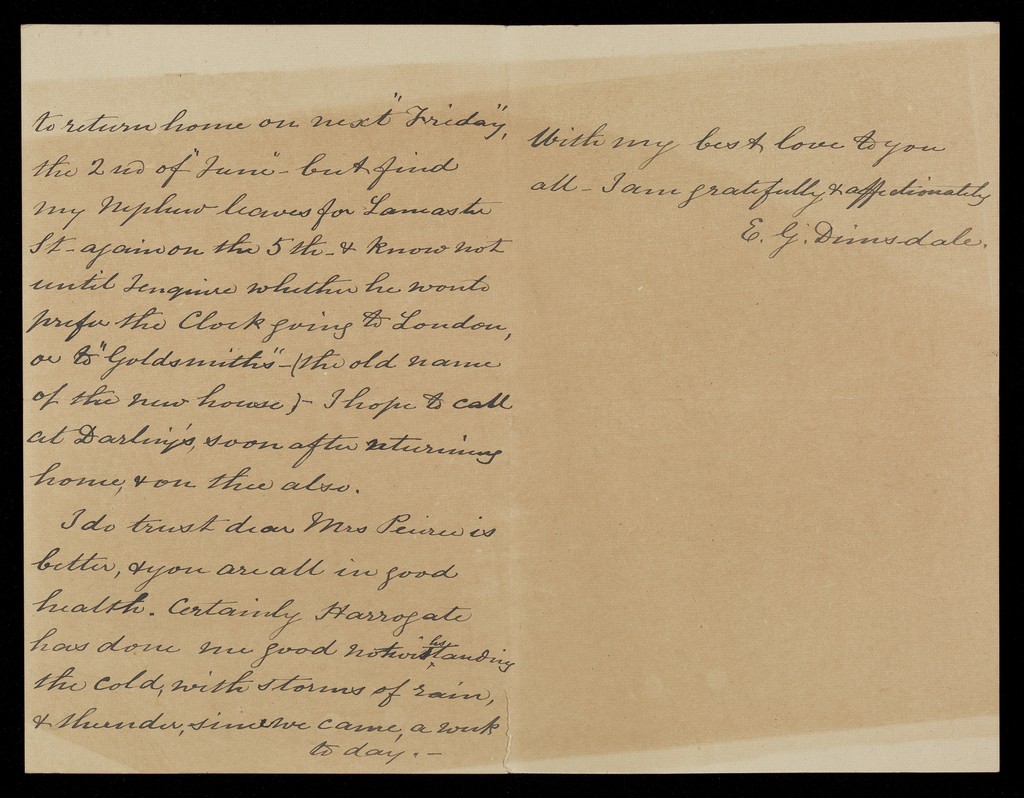 to return home on next "Friday",
the 2nd of "June" - but find
my Nephew leaves for Lancaster
St - again on the 5th - & know not
until I enquire whether he would
prefer the Clock going to London,
or to "Goldsmiths" - (the old name
of the new house) - I hope to call
at Darling's, soon after returning
home, & on thee also.
I do trust dear Mrs Peirce is
better, & you are all in good
health. Certainly Harrogate
has done me good notwithstanding
the cold, with storms of rain,
& thunder, since we came, a week
to day. -
With my best love to you
all - I am gratefully & affectionately
E. G. Dimsdale.